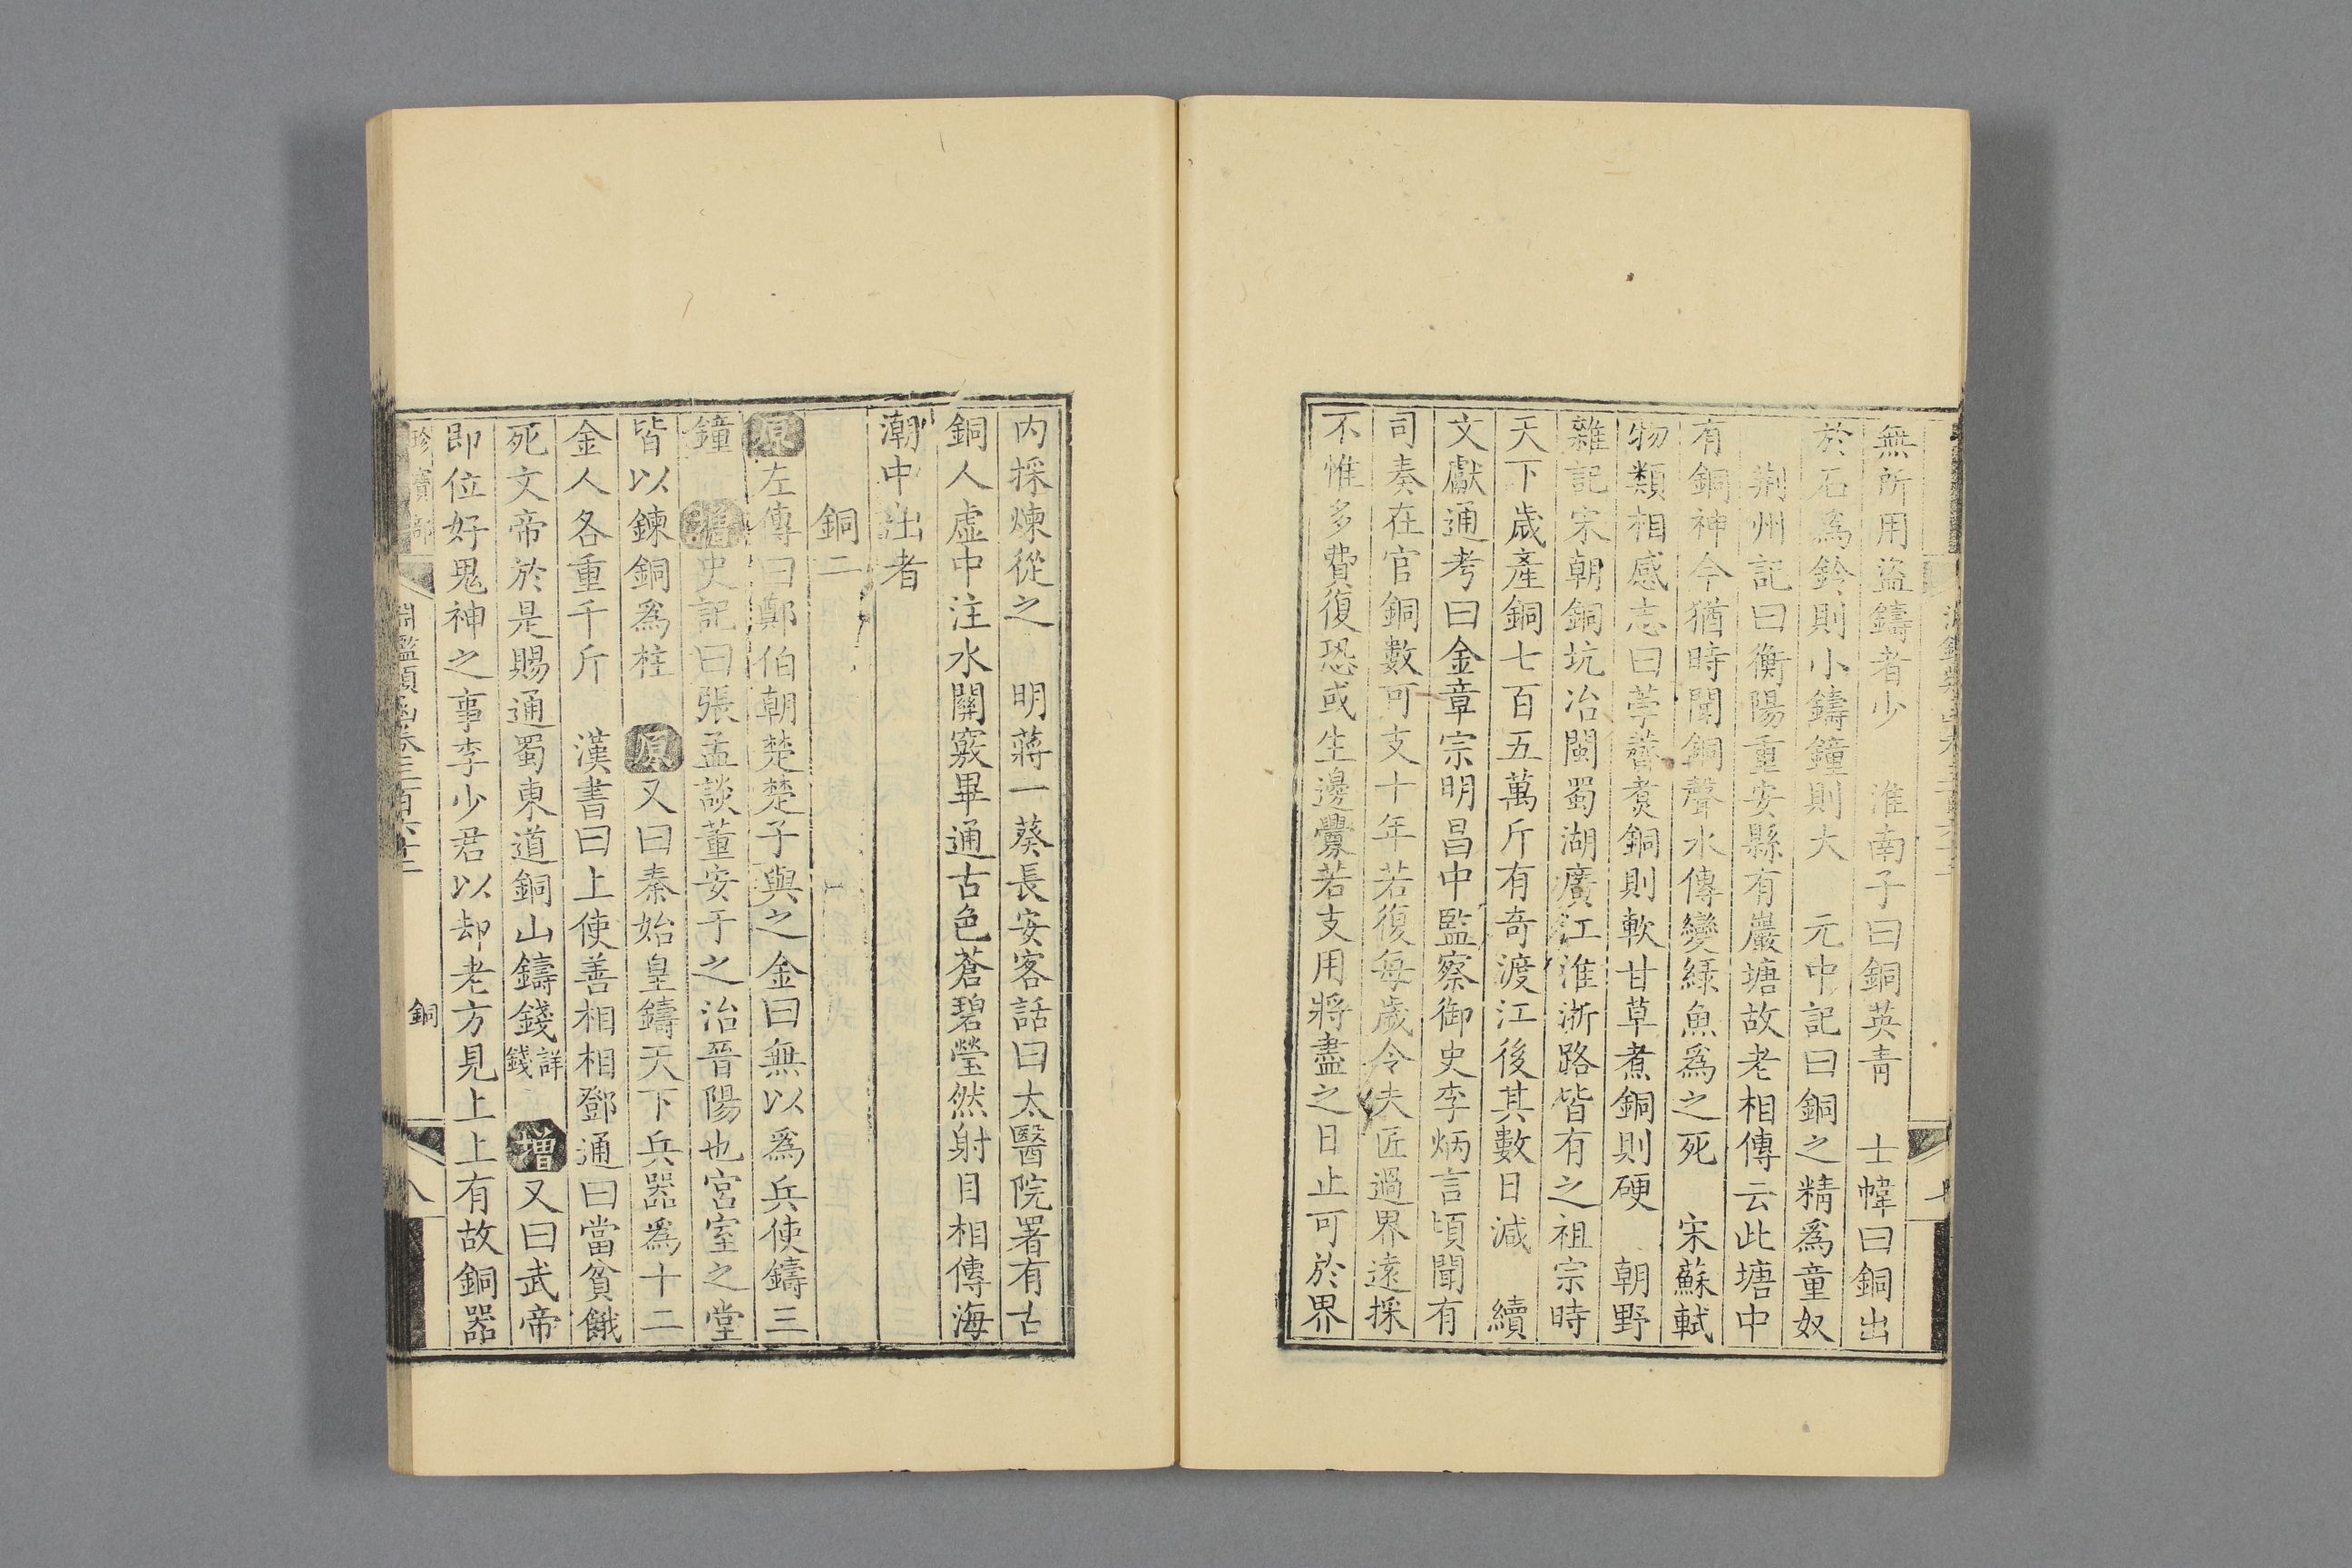 無所用盜鑄者少　淮南子曰銅英青　士幃曰銅出
於石爲鈴則小鑄鐘則大　元中記曰銅之精爲童奴
荆州記曰衡陽重安縣有巖塘故老相傳云此塘中
有銅神今猶時聞銅聲水傳變綠魚爲之死　宋蘇軾
物類相感志曰荸薺煑銅則軟甘草煮銅則硬　朝野
雜記宋朝銅坑冶閩蜀湖廣江淮浙路皆有之祖宗時
天下歲產銅七百五萬斤有奇渡江後其數日減　續
文獻通考曰金章宗明昌中監察御史李炳言頃聞有
司奏在官銅數可支十年若復每歲令夫匠過界遠採
不惟多費復恐或生邊釁若支用將盡之日止可於界
内採煉從之　明蔣一葵長安客話曰太醫院署有古
銅人虛中注水關竅畢通古色蒼碧瑩然射目相傳海
潮中出者
銅二
原左傳曰鄭伯朝楚楚子與之金曰無以爲兵使鑄三
鐘　史記曰張孟談董安于之治晉陽也宮室之堂
皆以鍊銅爲柱　原又曰秦始皇鑄天下兵器爲十二
金人各重千斤　漢書曰上使善相相鄧通曰當貧餓
死文帝於是賜通蜀東道銅山鑄錢詳錢　增又曰武帝
即位好鬼神之事李少君以却老方見上上有故銅器
珍寶部　淵鑑類函卷三百六十二　銅　八